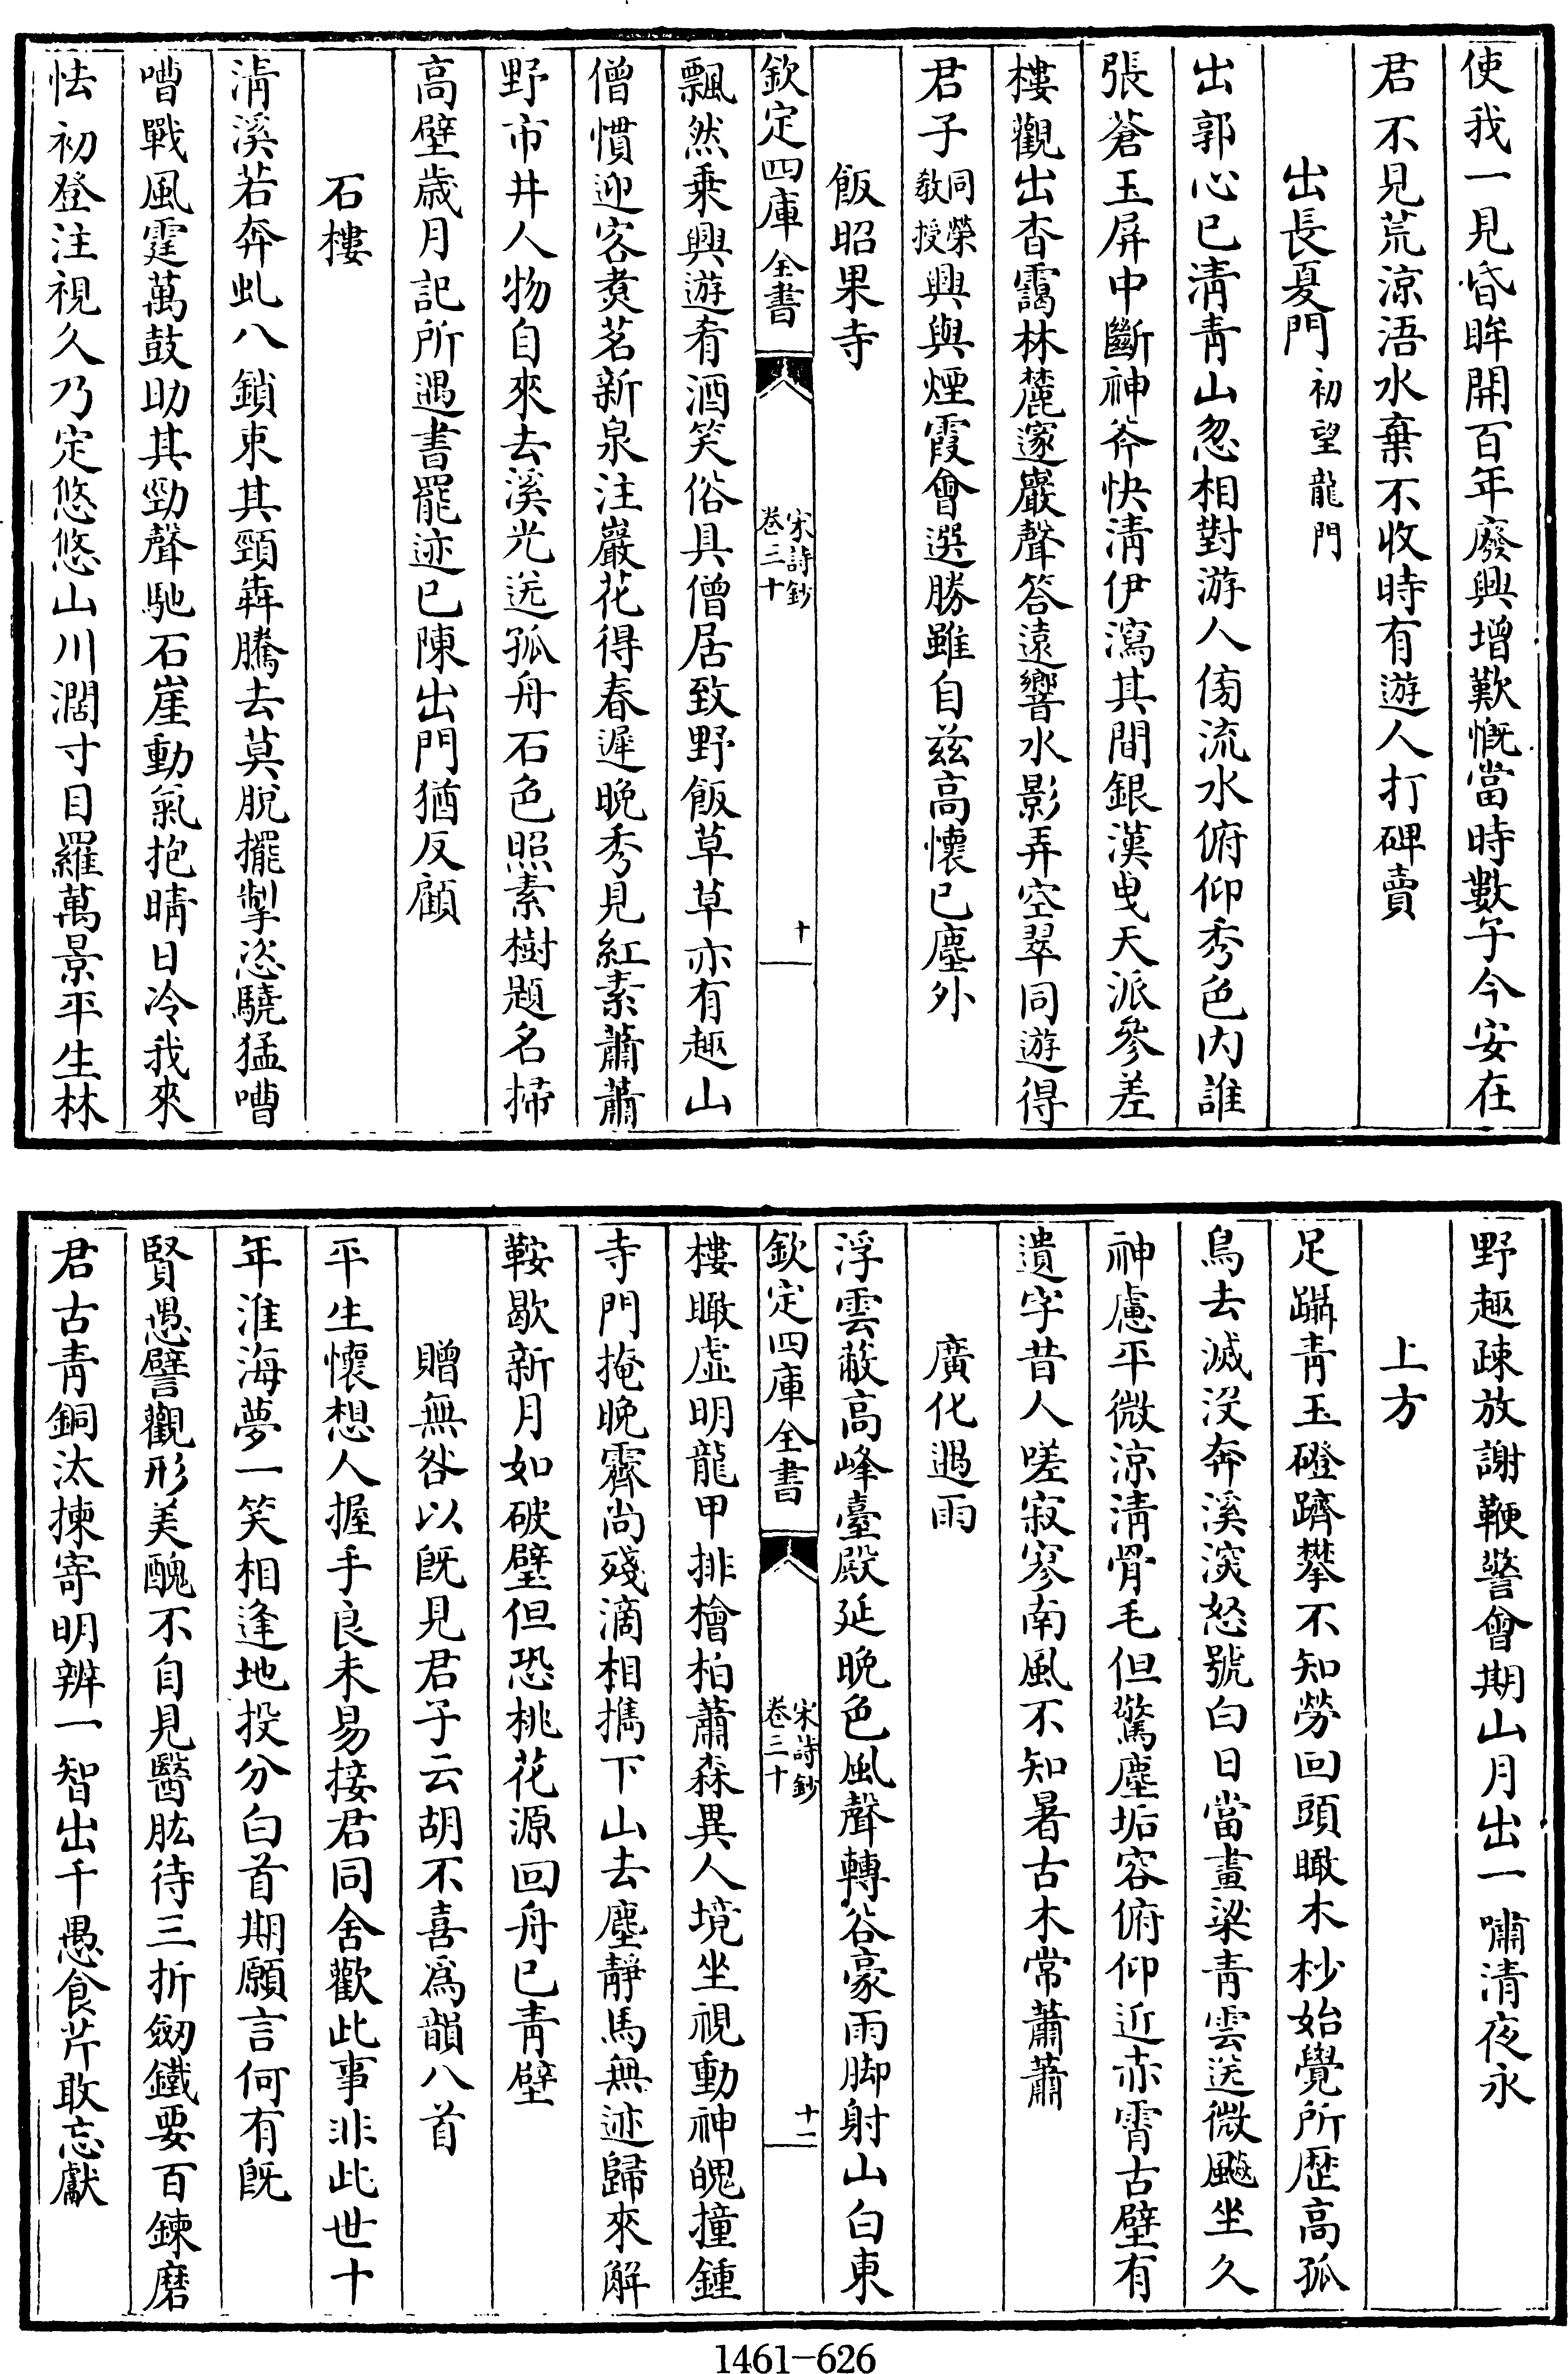 使我一見昏眸開百年廢興增歎慨當時數子今安在
君不見荒涼浯水棄不收時有遊人打碑賣
出長夏門初望龍門
出郭心已清青山忽相對游人傍流水俯仰秀色内誰
張蒼玉屏中斷神斧快清伊瀉其間銀漢曳天派參差
樓觀出杳靄林麓邃巖聲答遠響水影弄空翠同遊得
君子同榮教授興與煙霞會選勝雖自兹高懷已塵外
飯昭果寺
欽定四庫全書
宋詩鈔
卷三十
十
飄然乗興遊肴酒笑俗具僧居致野飯草草亦有趣山
僧慣迎客煑茗新泉注巖花得春遲晚秀見紅素蕭蕭
野市井人物自來去溪光送孤舟石色照素樹題名掃
高壁歳月記所遇書罷迹已陳出門猶反顧
石樓
清溪若奔虬八鎖束其頸犇騰去莫脫擺掣恣驍猛嘈
嘈戰風霆萬鼓助其勁聲馳石崖動氣抱晴日冷我來
怯初登注視久乃定悠悠山川濶寸目羅萬景平生林
野趣疎放謝鞭警會期山月出一嘯清夜永
上方
足躡青玉磴躋攀不知勞回頭瞰木杪始覺所歷高孤
鳥去滅没奔溪深怒號白日當畫梁青雲送微飈坐久
神慮平微涼清骨毛但驚塵垢容俯仰近赤霄古壁有
遺字昔人嗟寂寥南風不知暑古木常蕭蕭
廣化遇雨
浮雲蔽高峰臺殿延晚色風聲轉谷豪雨脚射山白東
欽定四庫全書
宋詩鈔
卷三十
十一
樓瞰虛明龍甲排檜柏蕭森異人境坐視動神魄撞鍾
寺門掩晚霽尚殘滴相擕下山去塵靜馬無迹歸來解
鞍歇新月如破璧但恐桃花源回舟已青壁
贈無咎以既見君子云胡不喜爲韻八首
平生懷想人握手良未易接君同舍歡此事非此世十
年淮海夢一笑相逢地投分白首期願言何有既
賢愚譬觀形美醜不自見醫肱待三折劒鐵要百鍊磨
君古青銅汰揀寄明辨一智出千愚食芹敢忘獻
1461-626